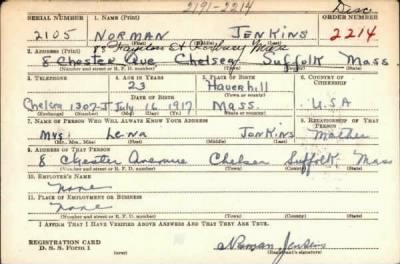 2191-2214
Disc.
SERIAL NUMBER 1. NAME (Print) ORDER NUMBER
2105 NORMAN JENKINS 2214
(First) (Middle) (Last)
2. ADDRESS (Print)
8 Chester Ave Chelsea Suffolk Mass
(Number and street or R. F. D. number) (Town) (County) (State)
3. TELEPHONE 4. AGE IN YEARS 5. PLACE OF BIRTH 6. COUNTRY OF CITIZENSHIP
23 Haverhill
DATE OF BIRTH (Town or county)
Chelsea 1307-J July 16 1917 Mass. U.S.A
(Exchange) (Number) (Mo.) (Day) (Yr.) (State or country)
7. NAME OF PERSON WHO WILL ALWAYS KNOW YOUR ADDRESS 8. RELATIONSHIP OF THAT PERSON
Mrs Lena Jenkins Mother
(Mr., Mrs., Miss) (First) (Middle) (Last)
9. ADDRESS OF THAT PERSON
8 Chester Avenue Chelsea Suffolk Mass
(Number and street or R. F. D. number) (Town) (County) (State)
10. EMPLOYER'S NAME
None
11. PLACE OF EMPLOYMENT OR BUSINESS
None
(Number and street or R. F. D. number) (Town) (County) (State)
I AFFIRM THAT I HAVE VERIFIED ABOVE ANSWERS AND THAT THEY ARE TRUE.
REGISTRATION CARD
D. S. S. Form 1 (over) Norman Jenkins
(Registrant's signature)